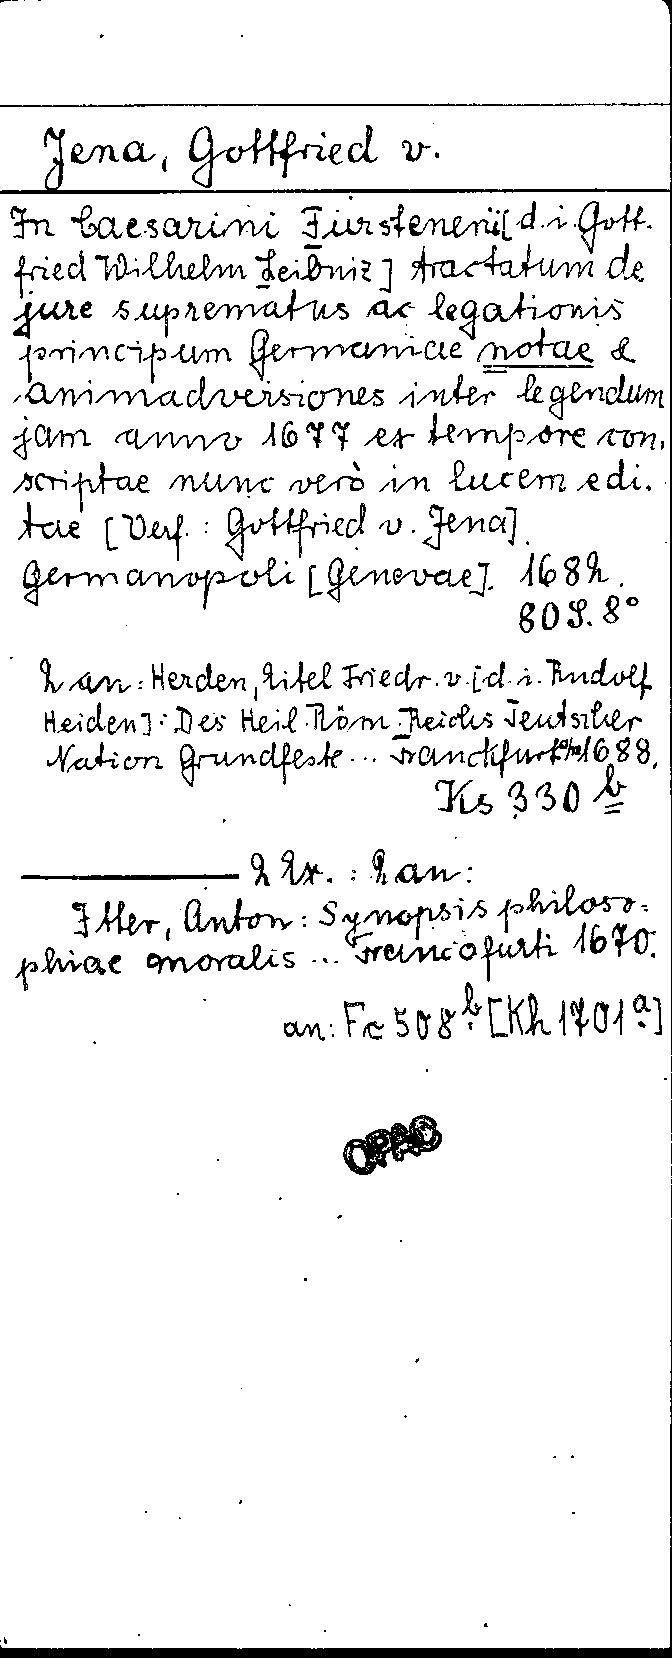 Jena, Gottfried v.
In Caesarini Fürstenerii [d.i. Gott-
fried Wilhelm Leibniz] tractatum de
jure suprematus ac legationis
principum Germaniae notae &
animadversiones inter legendum
jam anno 1677 ex tempore con-
scriptae nunc verò in lucem edi-
tae [Verf.: Gottfried v. Jena].
Germanopoli [Genevae]. 1682.
80 S. 8°
2 an: Herden, Eitel Friedr. v. [d.i. Rudolf
Heiden]: Des Heil. Röm. Reichs Teutscher
Nation Grundfeste ... Franckfurt 1688.
Ks 330 b
2 Ex.: 2 an:
Itter, Anton: Synopsis philoso-
phiae moralis ... Francofurti 1670.
an: Fc 508 b. [Kh 1701 a.]
OPAC